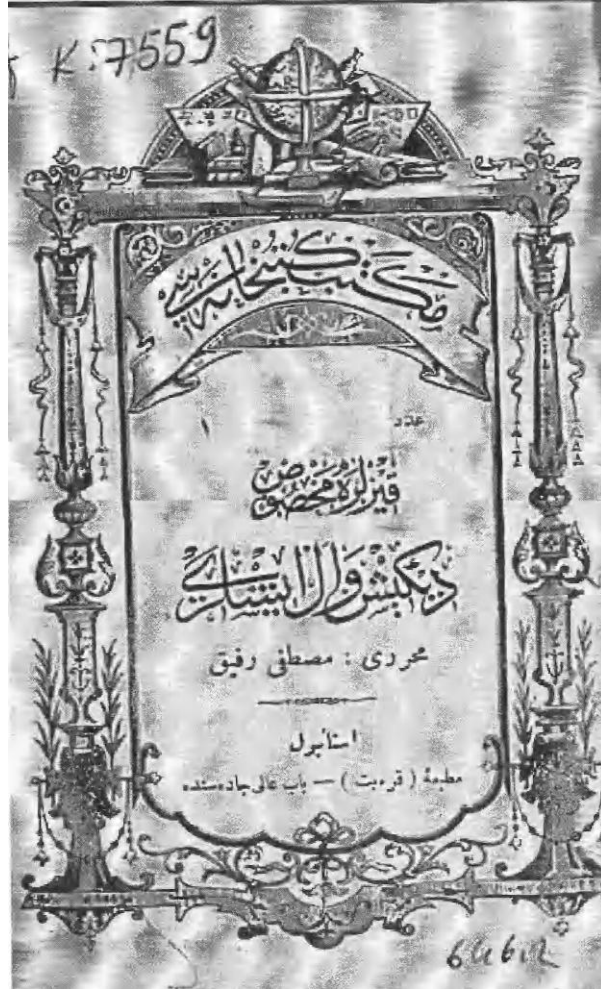 K.7559
مكتب كتبخانه‌سی
عدد ١
قیزلره مخصوص
دیكیش و ال ایشلری
محرری : مصطفی رفیق
استانبول
مطبعهٔ ( قره‌بت ) — باب عالی جاده‌سنده